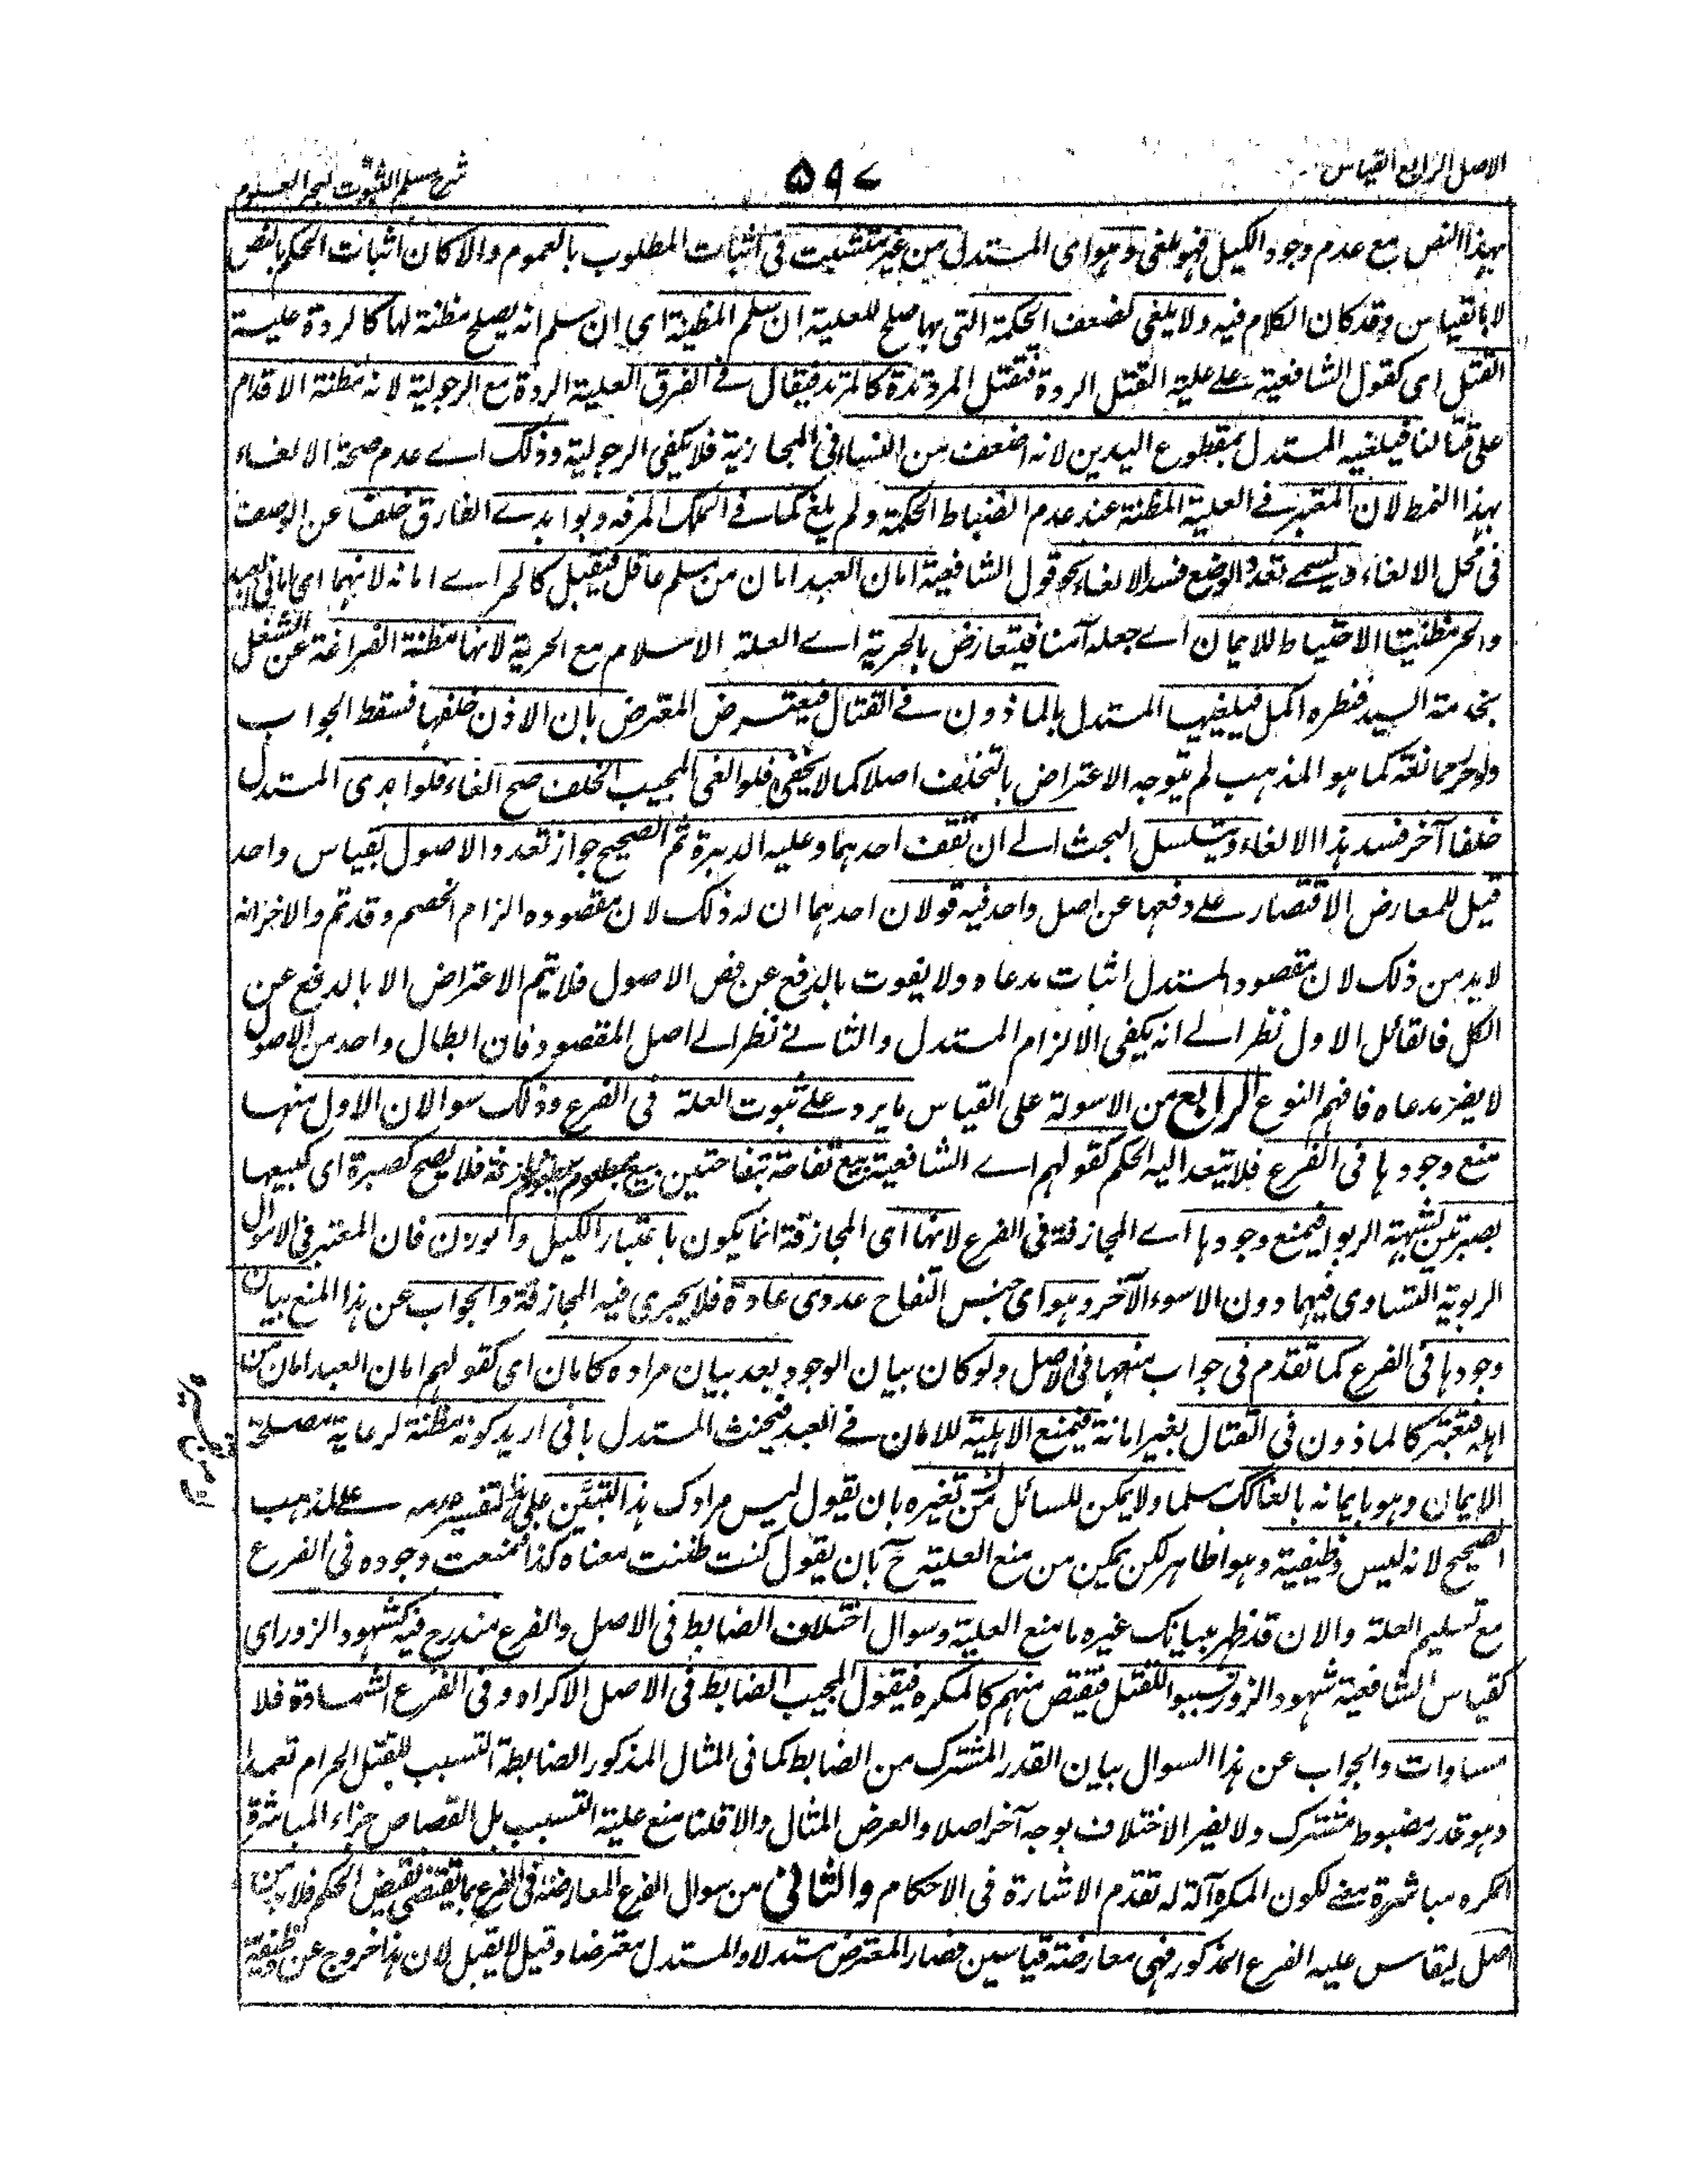 الاصل الرابع القیاس
۵۹۷
شرح مسلم الثبوت لبحر العلوم
بهذا النص مع عدم وجود الكیل فهو ملغی وهو ای المستدل من غیر متشبث فی اثبات المطلوب بالعموم والا كان اثبات الحكم بالنص
لا بالقیاس وقد كان الكلام فیه ولا یلغی لضعف الحكمة التی بها صلح للعلیة ان سلم المظنة ای ان سلم انه یصلح مظنة لها كالردة علیة
القتل ای كقول الشافعیة علی علیة القتل الردة فتقتل المرتدة كالمرتد فیقال فی الفرق العلیة الردة مع الرجولیة لانه مظنة الاقدام
علی قتالنا فیلغیه المستدل بمقطوع الیدین لانه اضعف من النساء فی المحاربة فلا یكفی الرجولیة وذلك ای عدم صحة الالغاء
بهذا النمط لان المعتبر فی العلیة المظنة عند عدم انضباط الحكمة ولم یلغ كما فی الملك المرفه ولو ابدی الفارق خلفا عن الوصف
فی محل الالغاء ویسمی تعدد الوضع فسد الالغاء نحو قول الشافعیة امان العبد امان من مسلم عاقل فیقبل كالحر ای امانه لانهما ای امانی العبد
والحر مظنتا الاحتیاط للایمان ای جعله آمنا فیتعارض بالحریة ای العلة الاسلام مع الحریة لانها مظنة الفراغة عن الشغل
بخدمة السید فنظره اكمل فیلغیها المستدل بالماذون فی القتال فیعترض المعترض بان الاذن خلفها فسقط الجواب
ولو حرر مانعته كما هو المذهب لم یتوجه الاعتراض بالتخلف اصلا كما لا یخفی فلو الغی المجیب الخلف صح الغاء فلو ابدی المستدل
خلفا آخر فسد هذا الالغاء ویتسلسل البحث الی ان تقف احدهما وعلیه الدبرة ثم الصحیح جواز تعدد الاصول بقیاس واحد
قیل للمعارض الاقتصار علی دفعها عن اصل واحد فیه قولان احدهما ان له ذلك لان مقصوده الزام الخصم وقد تم والاخر انه
لا بد من ذلك لان مقصود المستدل اثبات مدعاه ولا یفوت بالدفع عن بعض الاصول فلا یتم الاعتراض الا بالدفع عن
الكل فالقائل الاول نظر الی انه یكفی الالزام المستدل والثانی نظر الی اصل المقصود فان ابطال واحد من الاصول
لا یضر مدعاه فافهم النوع الرابع من الاسولة علی القیاس ما یرد علی ثبوت العلة فی الفرع وذلك سوالان الاول منها
منع وجودها فی الفرع فلا یتعد الیه الحكم كقولهم ای الشافعیة بیع تفاحة بتفاحتین بیع مطعوم بمطعوم فلا یصح كصبرة ای كبیعها
بصبرتین لشبهة الربوا فیمنع وجودها ای المجازفة فی الفرع لانها ای المجازفة انما یكون باعتبار الكیل والوزن فان المعتبر فی الاموال
الربویة التساوی فیهما دون الاسوء الآخر وهو ای جنس التفاح عددی عادة فلا یجری فیه المجازفة والجواب عن هذا المنع بیان
وجودها فی الفرع كما تقدم فی جواب منعها فی الاصل ولو كان بیان الوجود بعد بیان مراده كامان ای كقولهم امان العبد امان من
اهله فتعتبر كالماذون فی القتال بغیر امانة فیمنع الاهلیة للامان فی العبد فیجیب المستدل بانی ارید كونه مظنة لرعایة مصلحة
الایمان وهو بایمانه بالغا كك سلما ولا یمكن للسائل من تغیره بان یقول لیس مرادك هذا علی المذهب
الصحیح لانه لیس وظیفته وهو اظاهر لكن یمكن من منع العلیة ح بان یقول كنت ظننت معناه كذا فمنعت وجوده فی الفرع
مع تسلیم العلة والان قد ظهر ببیانك غیره فامنع العلیة وسوال اختلاف الضابط فی الاصل والفرع مندرج فیه كشهود الزور ای
كقیاس الشافعیة شهود الزور تسببوا للقتل فیقتص منهم كالمكره فیقول المجیب الضابط فی الاصل الاكراه وفی الفرع الشهادة فلا
مساوات والجواب عن هذا السوال ببیان القدر المشترك من الضابط كما فی المثال المذكور الضابطة التسبب للقتل الحرام تعمدا
وهو قدر مضبوط مشترك ولا یضر الاختلاف بوجه آخر اصلا والغرض المثال والا قلنا منع علیة التسبب بل القصاص جزاء المباشرة
المكره مباشرة معنی لكون المكره آلة له تقدم الاشارة فی الاحكام والثانی من سوال الفرع المعارضة فی الفرع بما یقتضی نقیض الحكم فلا بد من
اصل لیقاس علیه الفرع المذكور فهی معارضة قیاسین فصار المعترض مستدلا والمستدل معترضا وقیل لا یقبل لان هذا خروج عن وظیفته